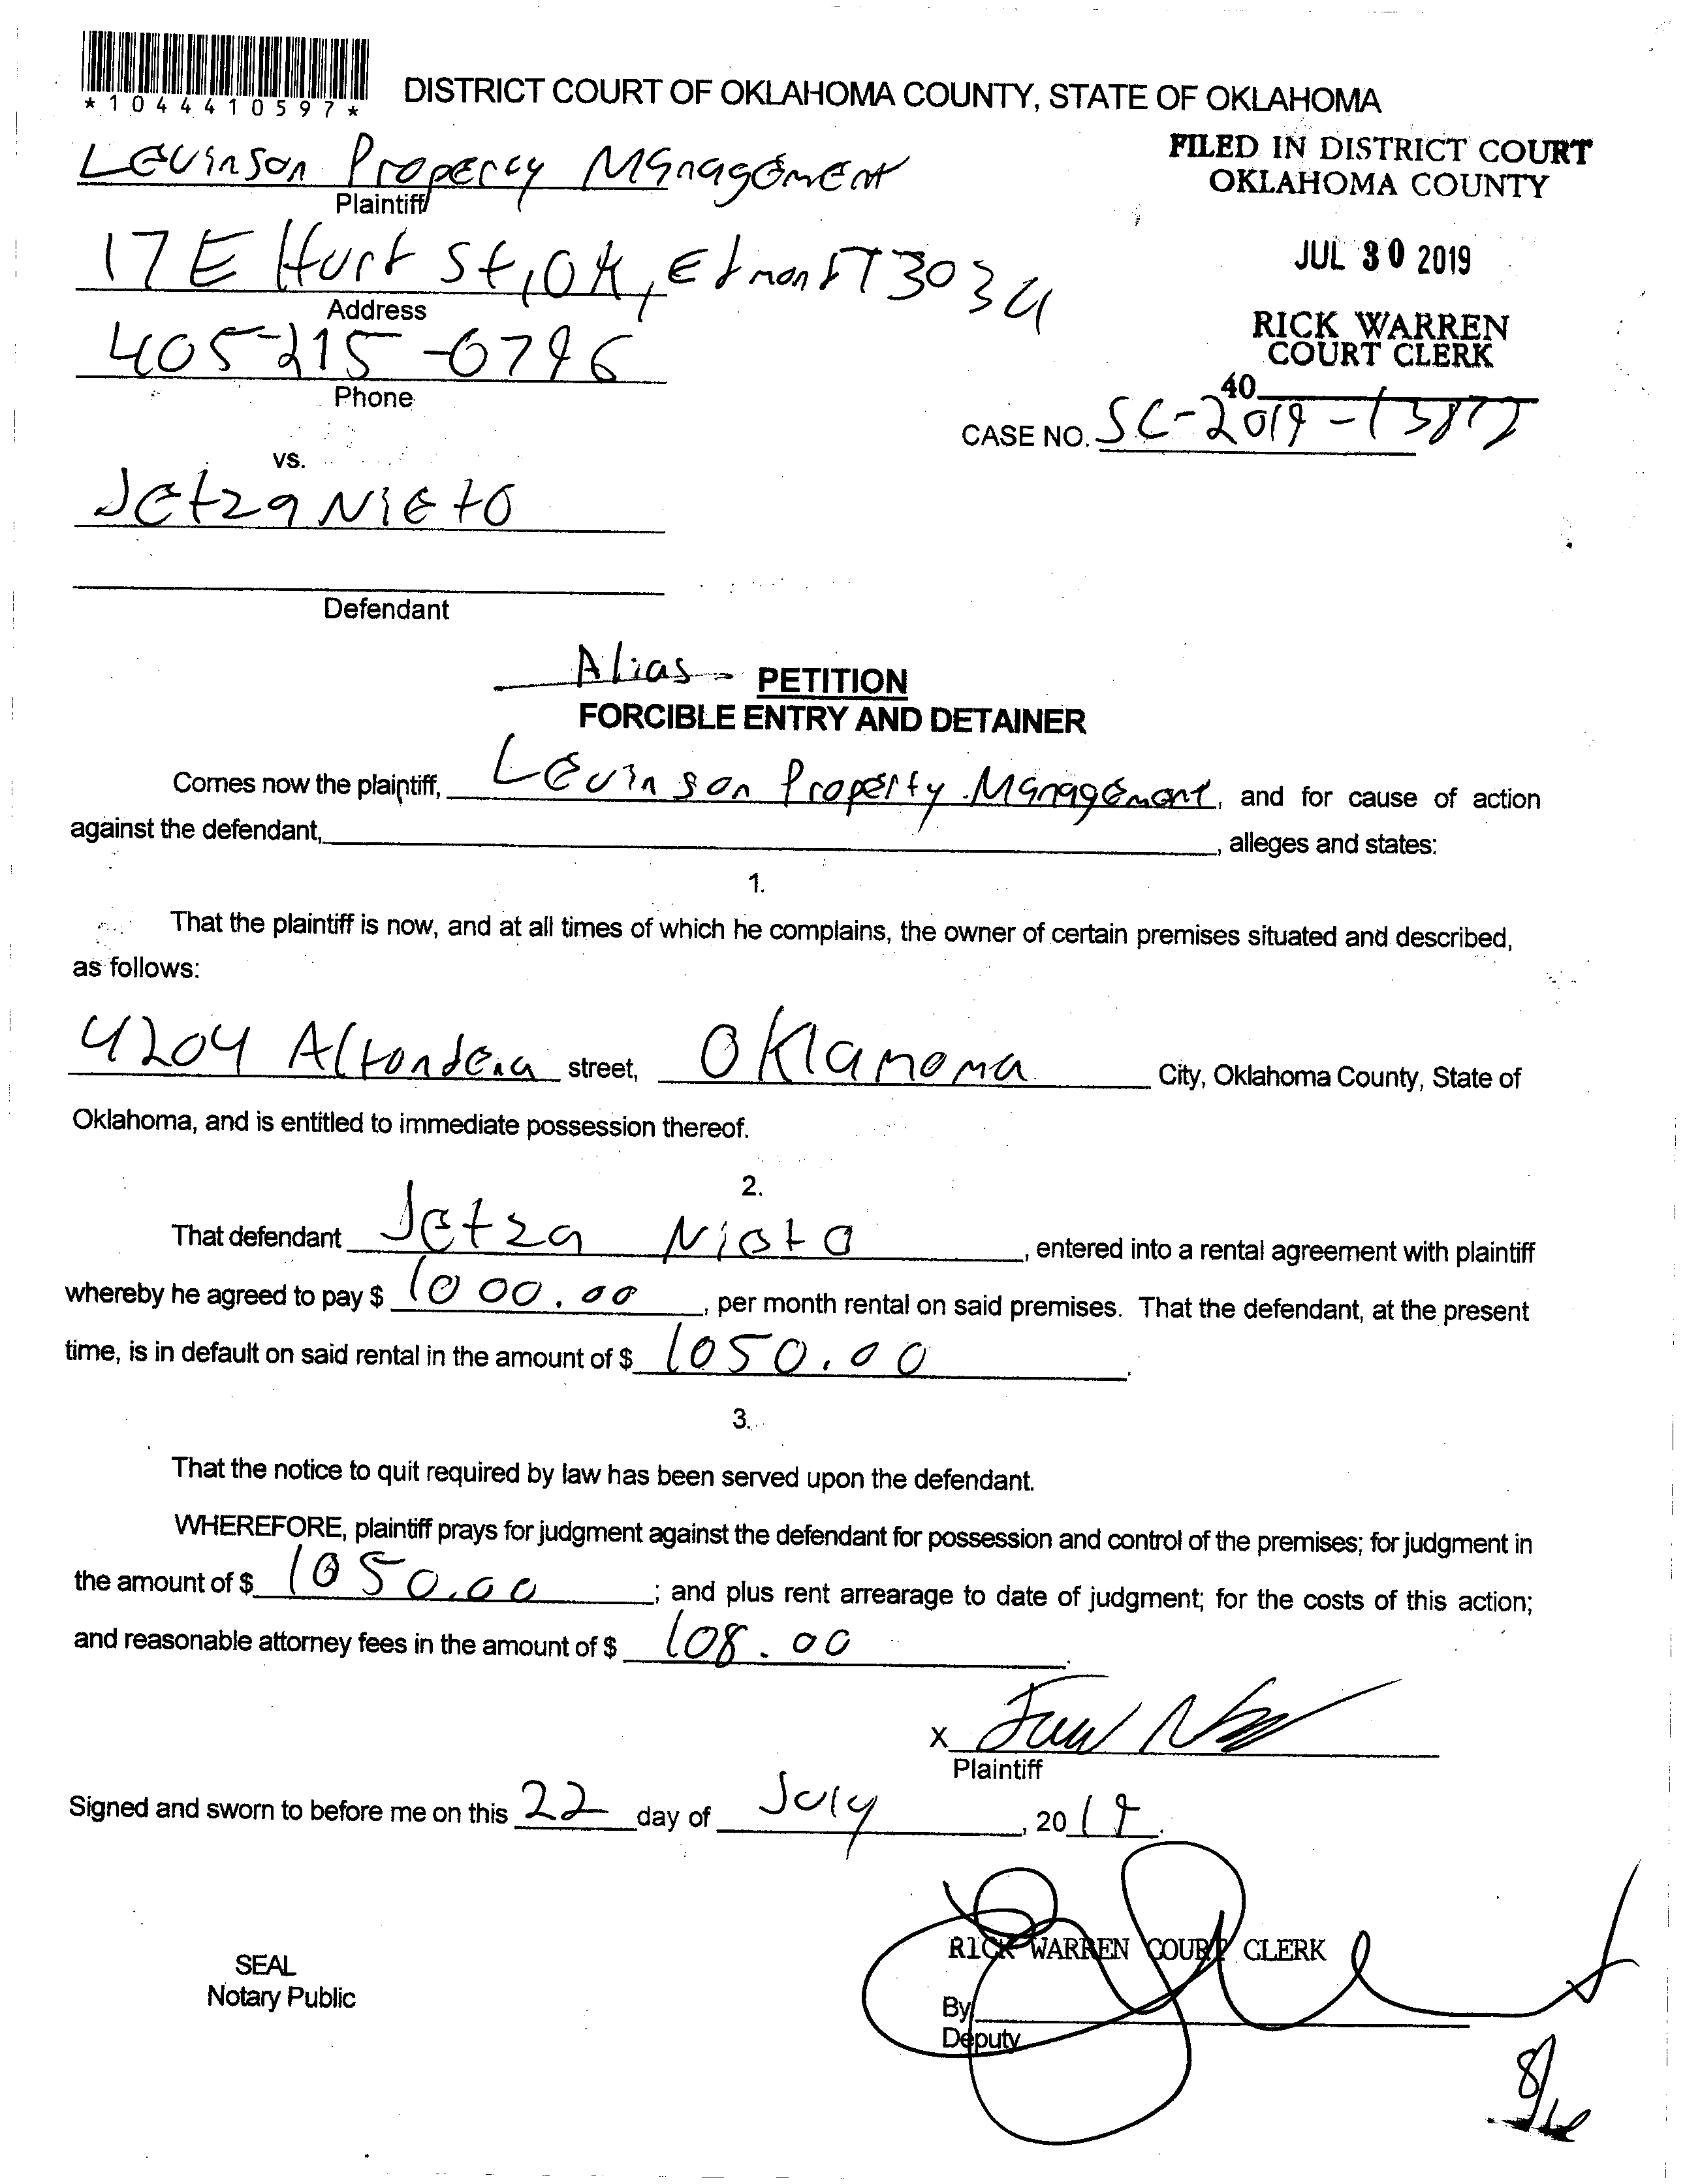 *1044410597*
DISTRICT COURT OF OKLAHOMA COUNTY, STATE OF OKLAHOMA
Levinson Property Management
Plaintiff
FILED IN DISTRICT COURT
OKLAHOMA COUNTY
17 E Hurt St, OK, Edmond 73034
Address
JUL 30 2019
405-215-0796
Phone
RICK WARREN
COURT CLERK
40
CASE NO. SC-2019-13872
vs.
Jetza Nieto
Defendant
Alias - PETITION
FORCIBLE ENTRY AND DETAINER
Comes now the plaintiff, Levinson Property Management, and for cause of action
against the defendant, , alleges and states:
1.
That the plaintiff is now, and at all times of which he complains, the owner of certain premises situated and described,
as follows:
4204 Altondena street, Oklahoma City, Oklahoma County, State of
Oklahoma, and is entitled to immediate possession thereof.
2.
That defendant Jetza Nieto, entered into a rental agreement with plaintiff
whereby he agreed to pay $ 1000.00, per month rental on said premises. That the defendant, at the present
time, is in default on said rental in the amount of $ 1050.00.
3.
That the notice to quit required by law has been served upon the defendant.
WHEREFORE, plaintiff prays for judgment against the defendant for possession and control of the premises; for judgment in
the amount of $ 1050.00; and plus rent arrearage to date of judgment; for the costs of this action;
and reasonable attorney fees in the amount of $ 108.00.
X
Plaintiff
Signed and sworn to before me on this 22 day of July, 2019.
RICK WARREN COURT CLERK
SEAL
Notary Public
By
Deputy